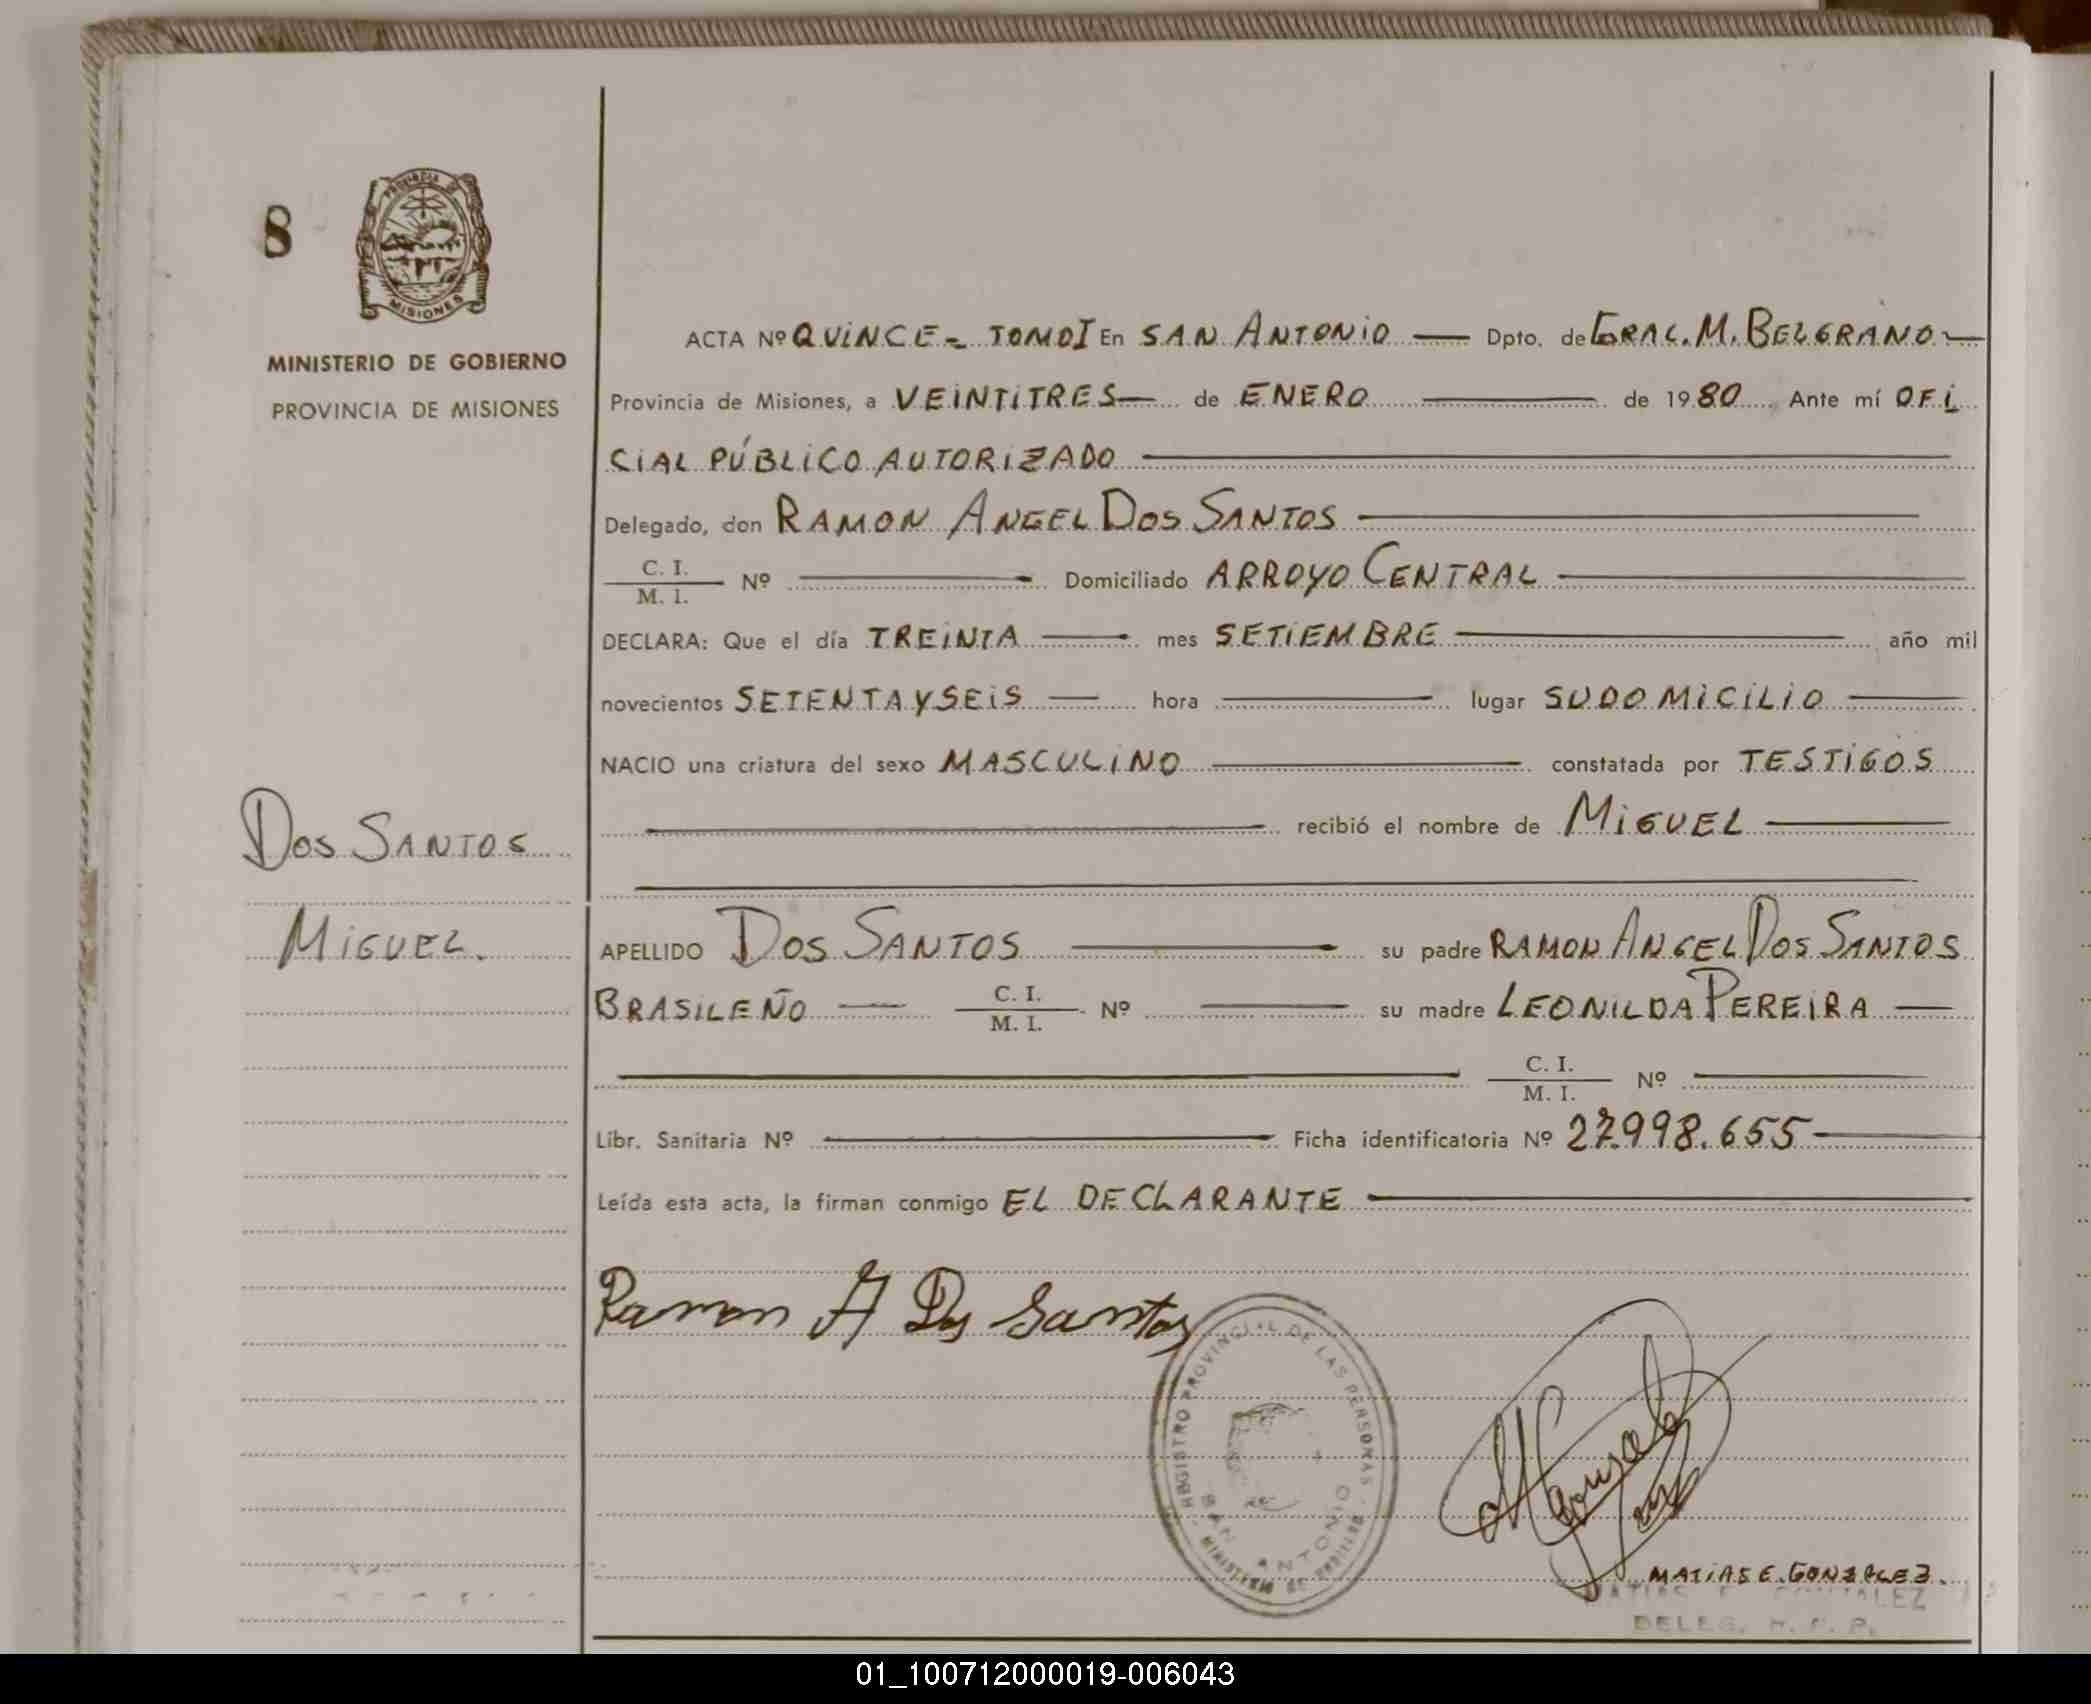 8
PROVINCIA DE
MISIONES
MINISTERIO DE GOBIERNO
PROVINCIA DE MISIONES
ACTA Nº QUINCE - TOMO I En SAN ANTONIO Dpto. de GRAL. M. BELGRANO
Provincia de Misiones, a VEINTITRES de ENERO de 1980 Ante mí OFI
CIAL PÚBLICO AUTORIZADO
Delegado, don RAMON ANGEL DOS SANTOS
C. I.
M. I. Nº Domiciliado ARROYO CENTRAL
DECLARA: Que el día TREINTA mes SETIEMBRE año mil
novecientos SETENTA Y SEIS hora lugar SU DOMICILIO
NACIO una criatura del sexo MASCULINO constatada por TESTIGOS
recibió el nombre de MIGUEL
DOS SANTOS
MIGUEL.
APELLIDO DOS SANTOS su padre RAMON ANGEL DOS SANTOS
BRASILEÑO C. I.
M. I. Nº su madre LEONILDA PEREIRA
C. I.
M. I. Nº
Libr. Sanitaria Nº Ficha identificatoria Nº 27.998.655
Leída esta acta, la firman conmigo EL DECLARANTE
Ramon A Dos Santos
REGISTRO PROVINCIAL DE LAS PERSONAS
SAN ANTONIO
MINISTERIO DE GOBIERNO
MATIAS E. GONZALEZ.
MATIAS E. GONZALEZ
DELEG. R. P. P.
01_100712000019-006043